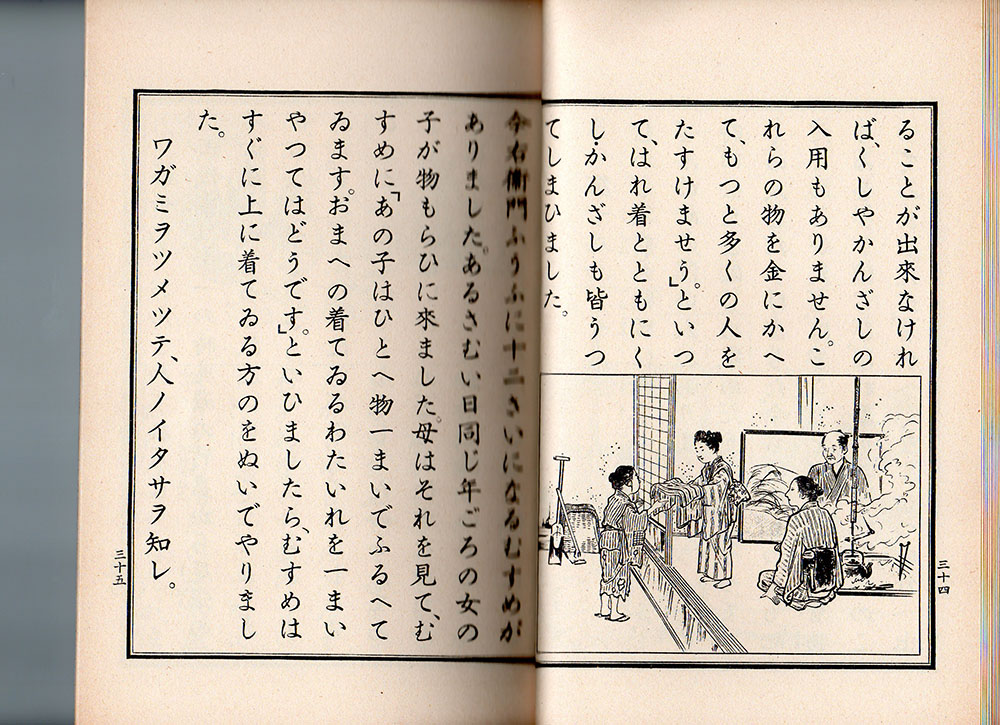 ることが出來なけれ
ば、くしやかんざしの
入用もありません。こ
れらの物を金にかへ
て、もつと多くの人を
たすけませう。」といつ
て、はれ着とともにく
し・かんざしも皆うつ
てしまひました。
三十四
今右衞門ふうふに十二さいになるむすめが
ありました。あるさむい日同じ年ごろの女の
子が物もらひに來ました。母はそれを見て、む
すめに「あの子はひとへ物一まいでふるへて
ゐます。おまへの着てゐるわたいれを一まい
やつてはどうです。」といひましたら、むすめは
すぐに上に着てゐる方のをぬいでやりまし
た。
ワガミヲツメツテ、人ノイタサヲ知レ。
三十五